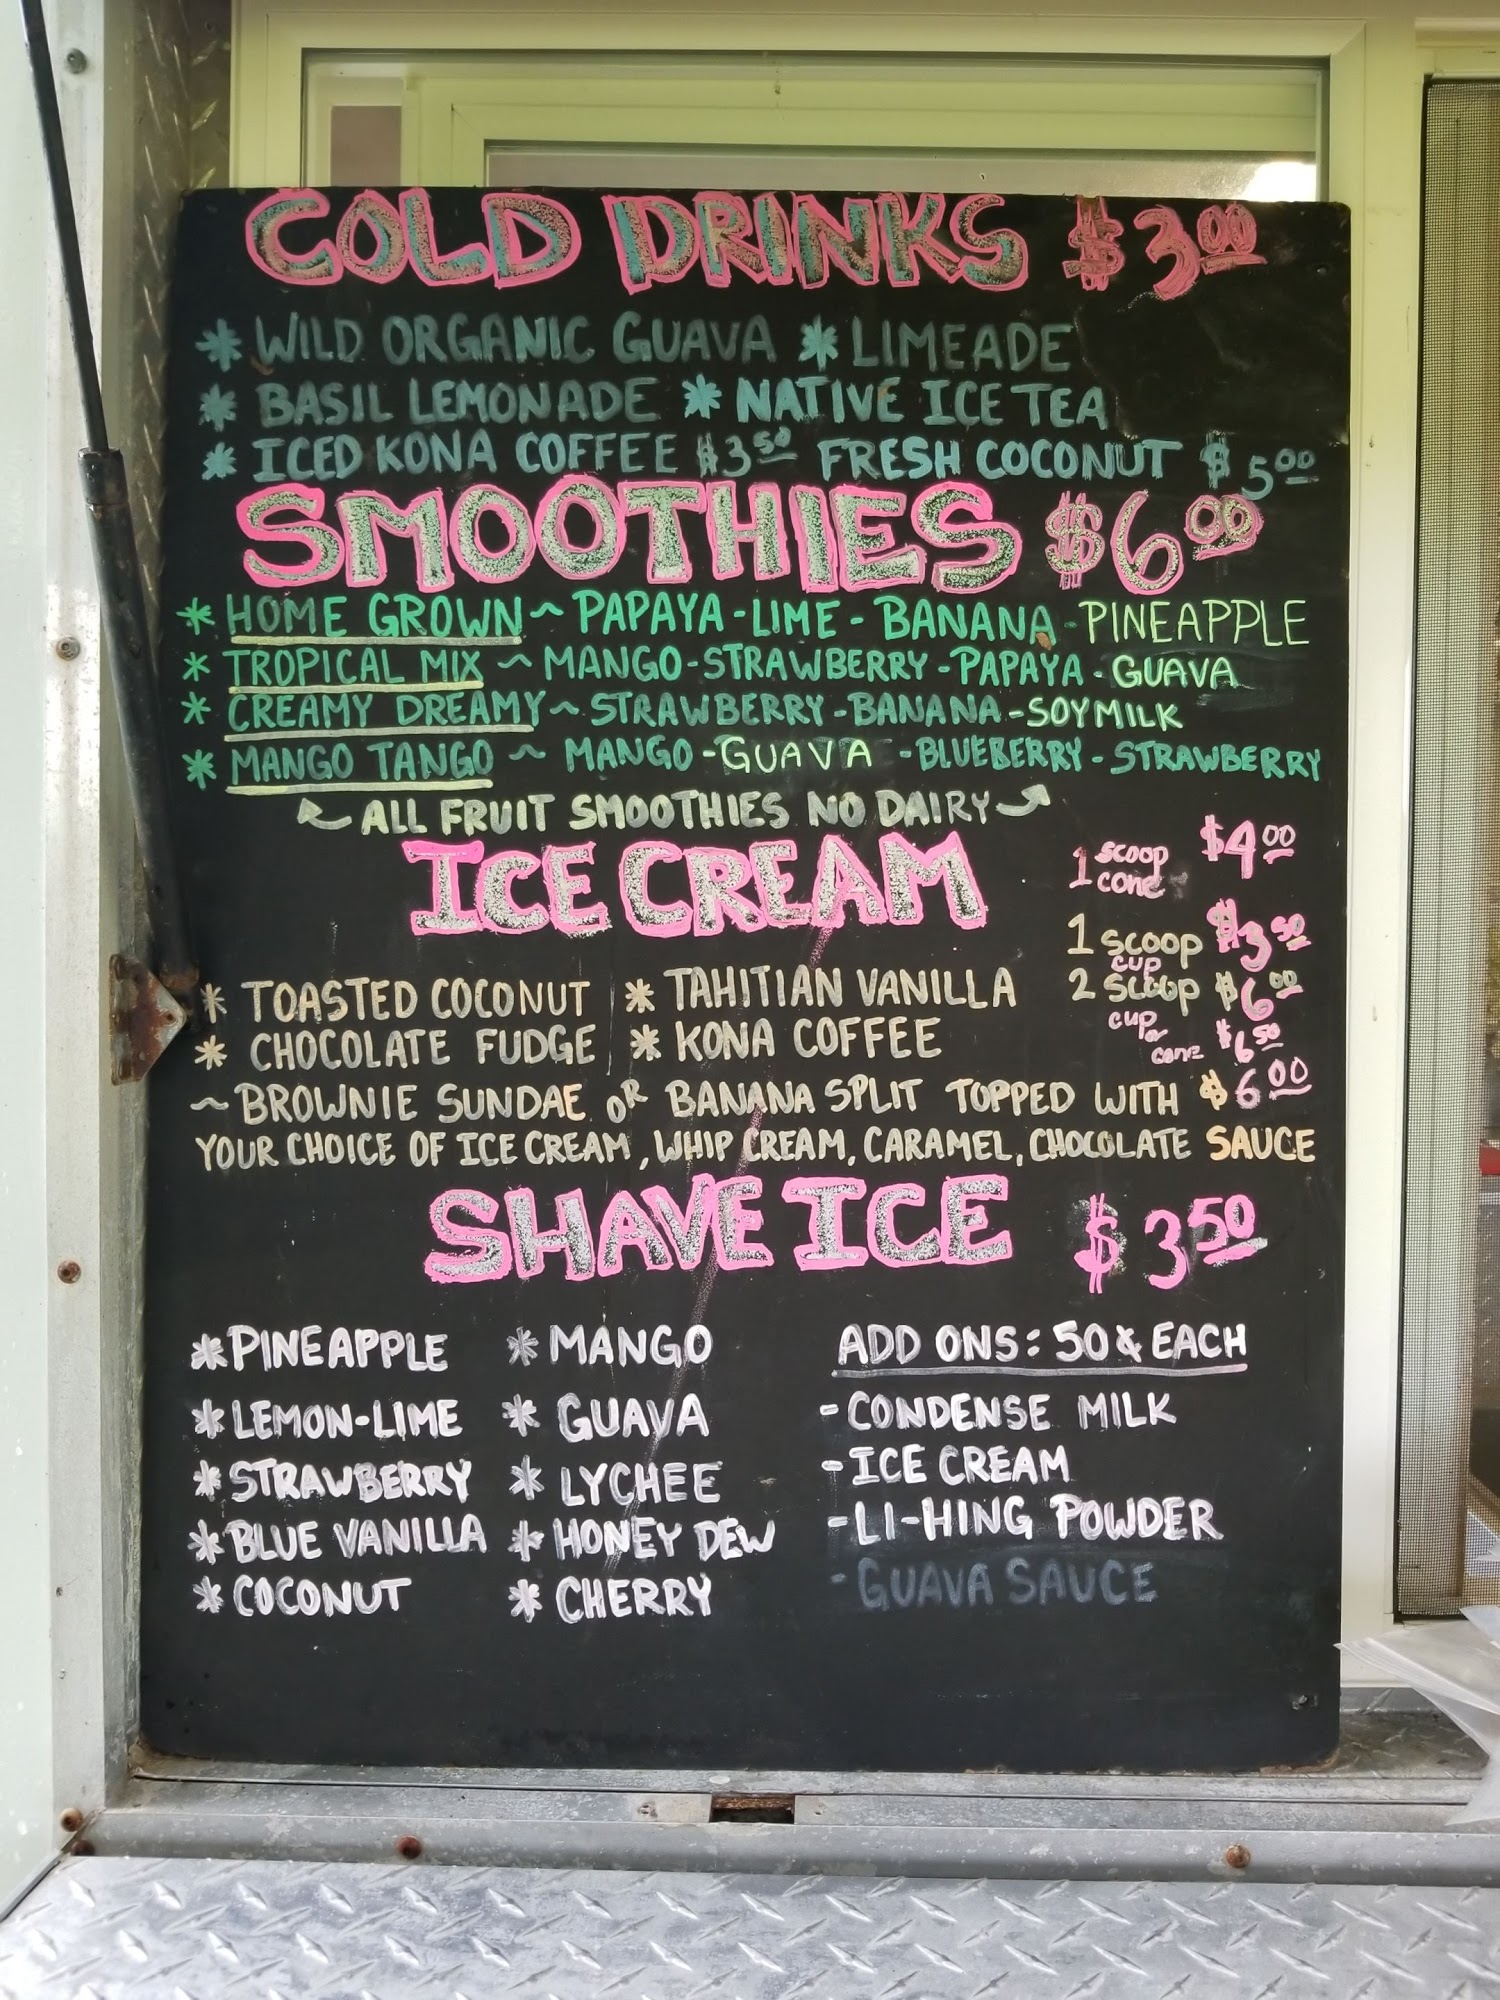 COLD DRINKS $3.00
* WILD ORGANIC GUAVA * LIMEADE
* BASIL LEMONADE * NATIVE ICE TEA
* ICED KONA COFFEE $3.50 FRESH COCONUT $5.00
SMOOTHIES $6.00
* HOME GROWN ~ PAPAYA - LIME - BANANA - PINEAPPLE
* TROPICAL MIX ~ MANGO - STRAWBERRY - PAPAYA - GUAVA
* CREAMY DREAMY ~ STRAWBERRY - BANANA - SOYMILK
* MANGO TANGO ~ MANGO - GUAVA - BLUEBERRY - STRAWBERRY
ALL FRUIT SMOOTHIES NO DAIRY
ICE CREAM
1 SCOOP CONE $4.00
1 SCOOP CUP $3.50
2 SCOOP CUP $6.00
or CONE $6.50
* TOASTED COCONUT * TAHITIAN VANILLA
* CHOCOLATE FUDGE * KONA COFFEE
~ BROWNIE SUNDAE OR BANANA SPLIT TOPPED WITH $6.00
YOUR CHOICE OF ICE CREAM, WHIP CREAM, CARAMEL, CHOCOLATE SAUCE
SHAVE ICE $3.50
* PINEAPPLE
* LEMON-LIME
* STRAWBERRY
* BLUE VANILLA
* COCONUT
* MANGO
* GUAVA
* LYCHEE
* HONEY DEW
* CHERRY
ADD ONS: 50¢ EACH
- CONDENSE MILK
- ICE CREAM
- LI-HING POWDER
- GUAVA SAUCE